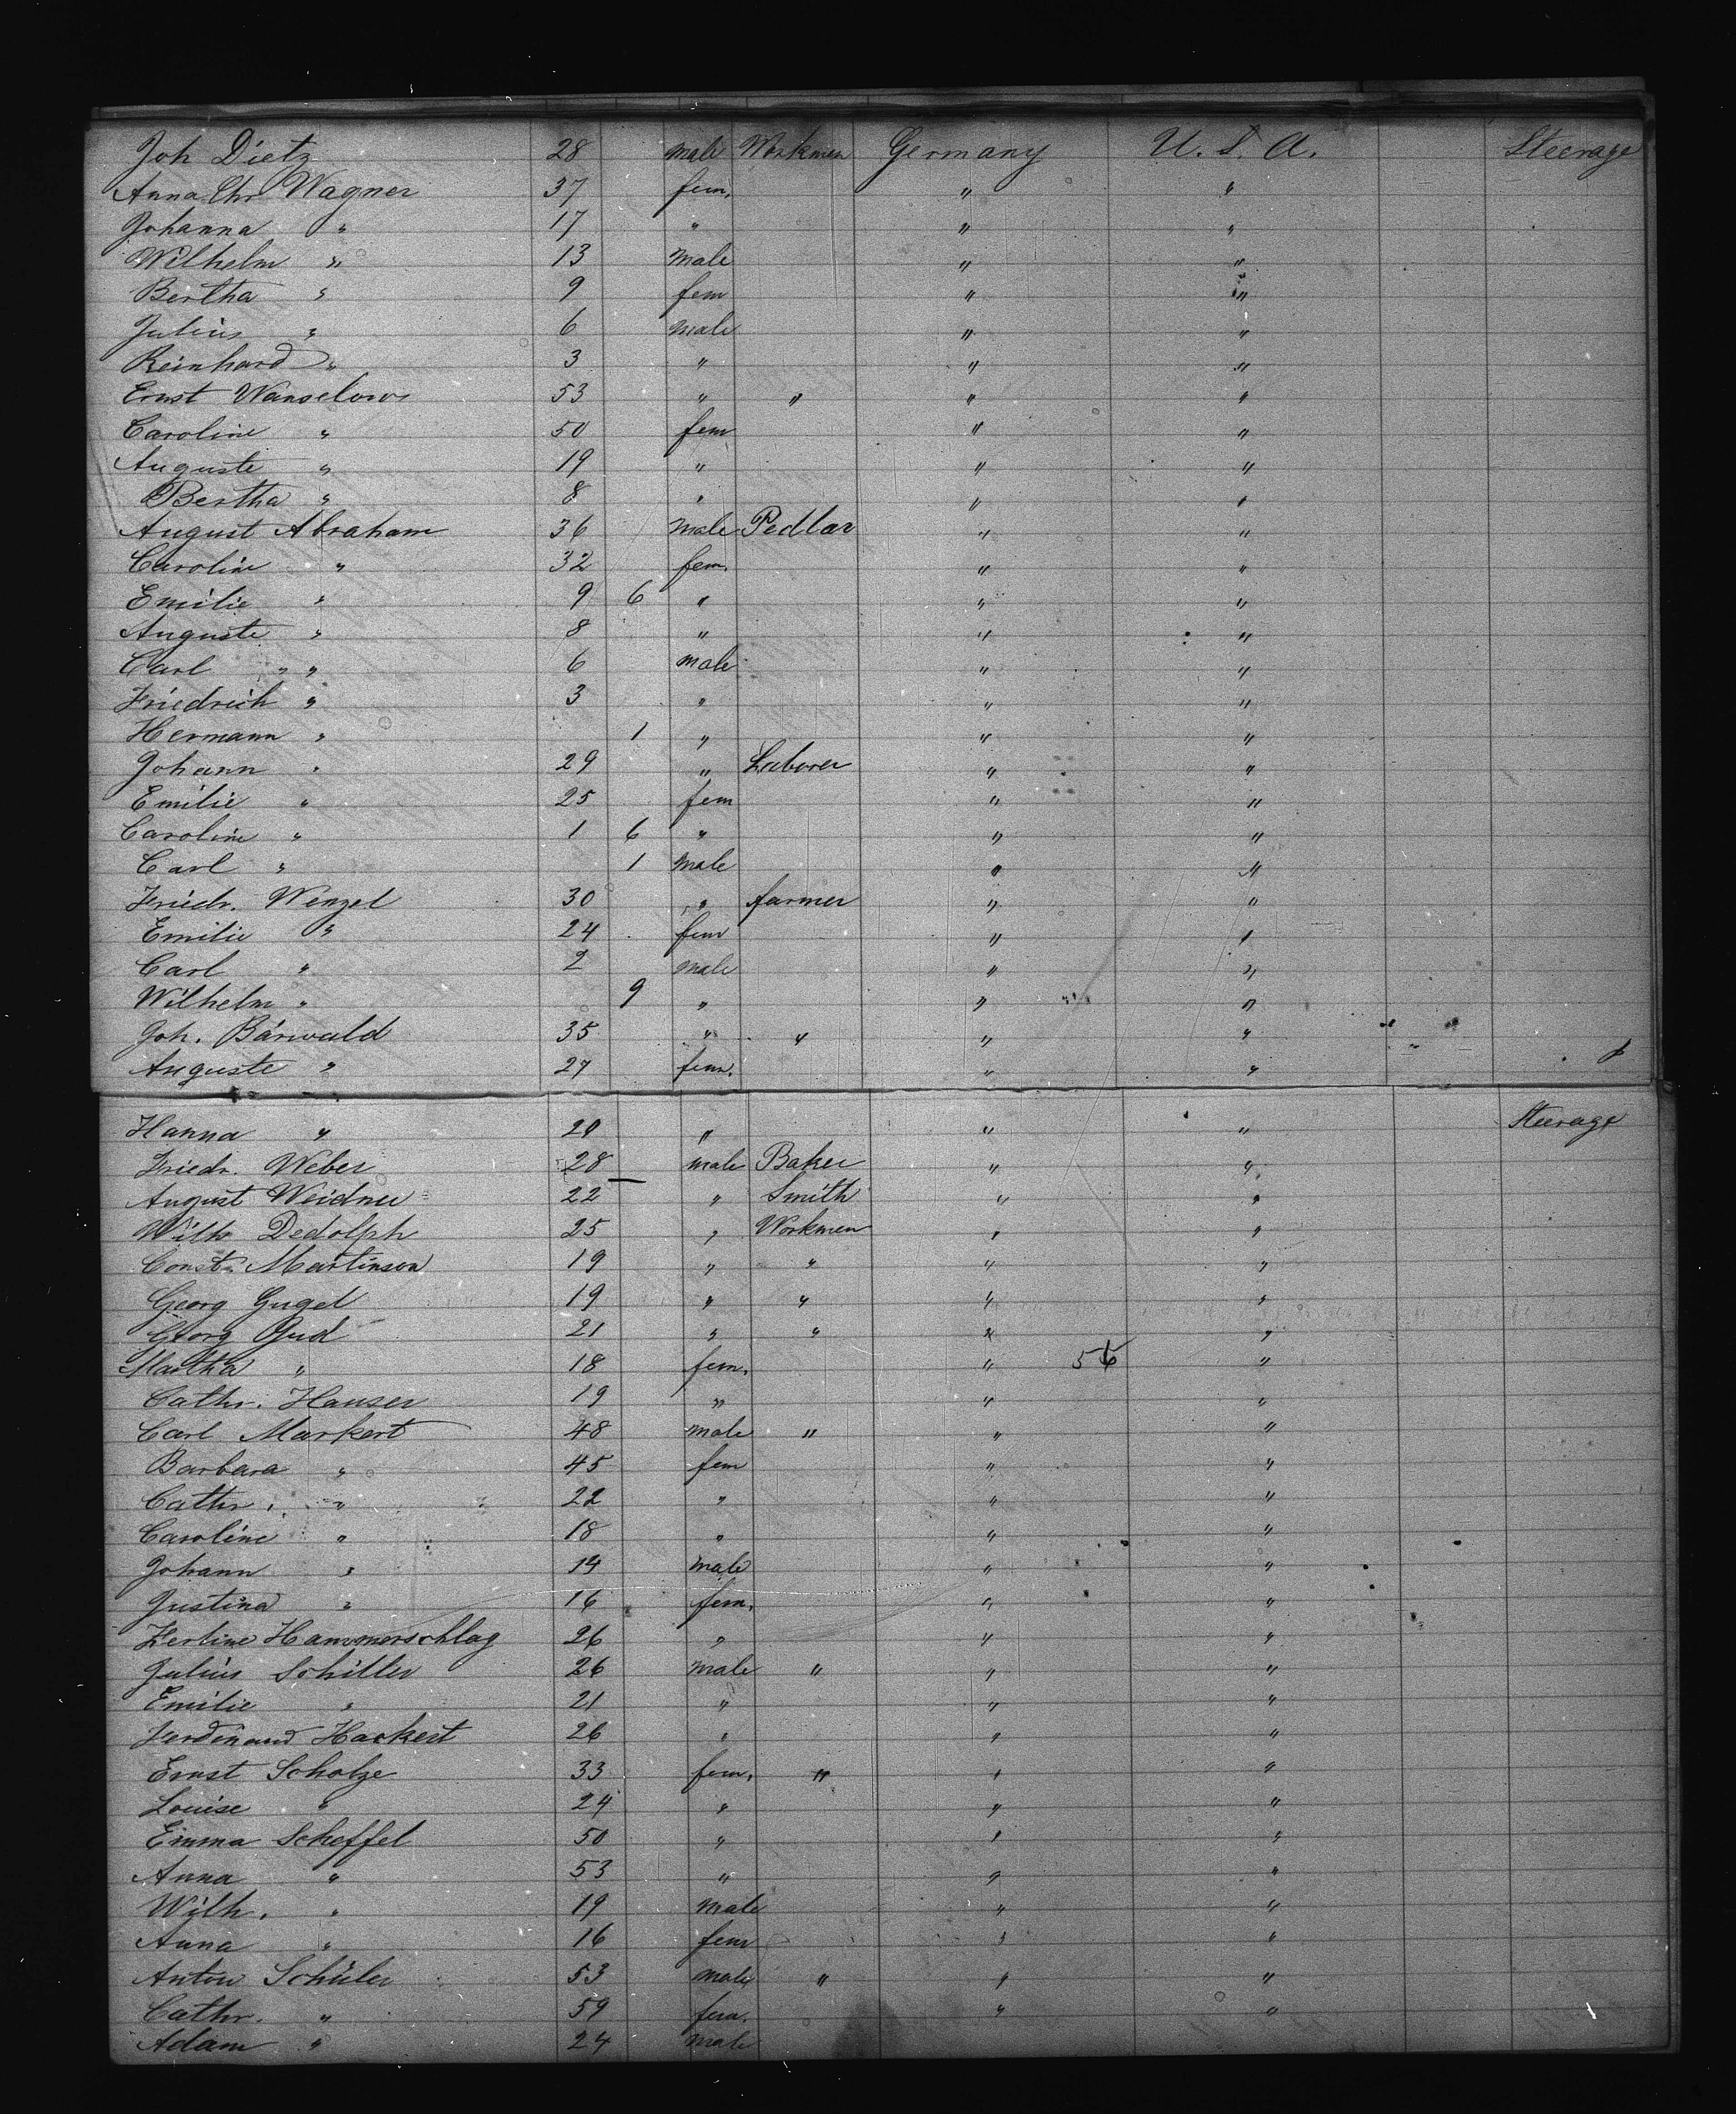 Joh Dietz 28 male Workmen Germany U. S. A. Steerage
Anna Chr. Wagner 37 fem. " "
Johanna " 17 " " "
Wilhelm " 13 male " "
Bertha " 9 fem " "
Julius " 6 male " "
Reinhard " 3 " " "
Ernst Wanselow 53 " " " "
Caroline " 50 fem " "
Auguste " 19 " " "
Bertha " 8 " " "
August Abraham 36 male Pedlar " "
Caroline " 32 fem. " "
Emilie " 9 6 " " "
Auguste " 8 " " "
Carl " " 6 male " "
Friedrich " 3 " " "
Hermann " 1 " " "
Johann " 29 " Laborer " "
Emilie " 25 fem " "
Caroline " 1 6 " " "
Carl " 1 male " "
Friedr. Wenzel 30 " farmer " "
Emilie " 24 fem " "
Carl " 2 male " "
Wilhelm " 9 " " "
Joh. Bärwald 35 " " " "
Auguste " 27 fem. " "
Hanna " 20 " " " Steerage
Friedr. Weber 28 male Baker " "
August Weidner 22 " Smith " "
Wilh Dedolph 25 " Workmen " "
Const. Martinson 19 " " " "
Georg Gugel 19 " " " "
Georg Gud 21 " " " "
Martha " 18 fem. " 56 "
Cathr. Hauser 19 " " "
Carl Markert 48 male " " "
Barbara " 45 fem " "
Cathr. " 22 " " "
Caroline " 18 " " "
Johann " 14 male " "
Justina " 16 fem. " "
Zerline Hammerschlag 26 " " "
Julius Schiller 26 male " " "
Emilie " 21 " " "
Ferdinand Hackert 26 " " "
Ernst Scholze 33 fem. " " "
Louise " 24 " " "
Emma Scheffel 50 " " "
Anna " 53 " " "
Wilh. " 19 male " "
Anna " 16 fem " "
Anton Schüler 53 male " " "
Cathr. " 59 fem. " "
Adam " 24 male